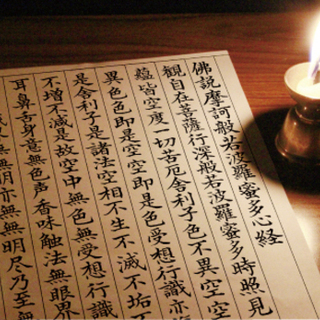 佛説摩訶般若波羅蜜多心経
観自在菩薩行深般若波羅蜜多時照見
蘊皆空度一切苦厄舎利子色不異空空
異色色即是空空即是色受想行識亦
是舎利子是諸法空相不生不滅不垢
不増不減是故空中無色無受想行識
耳鼻舌身意無色声香味触法無眼界
無無明亦無無明尽乃至無